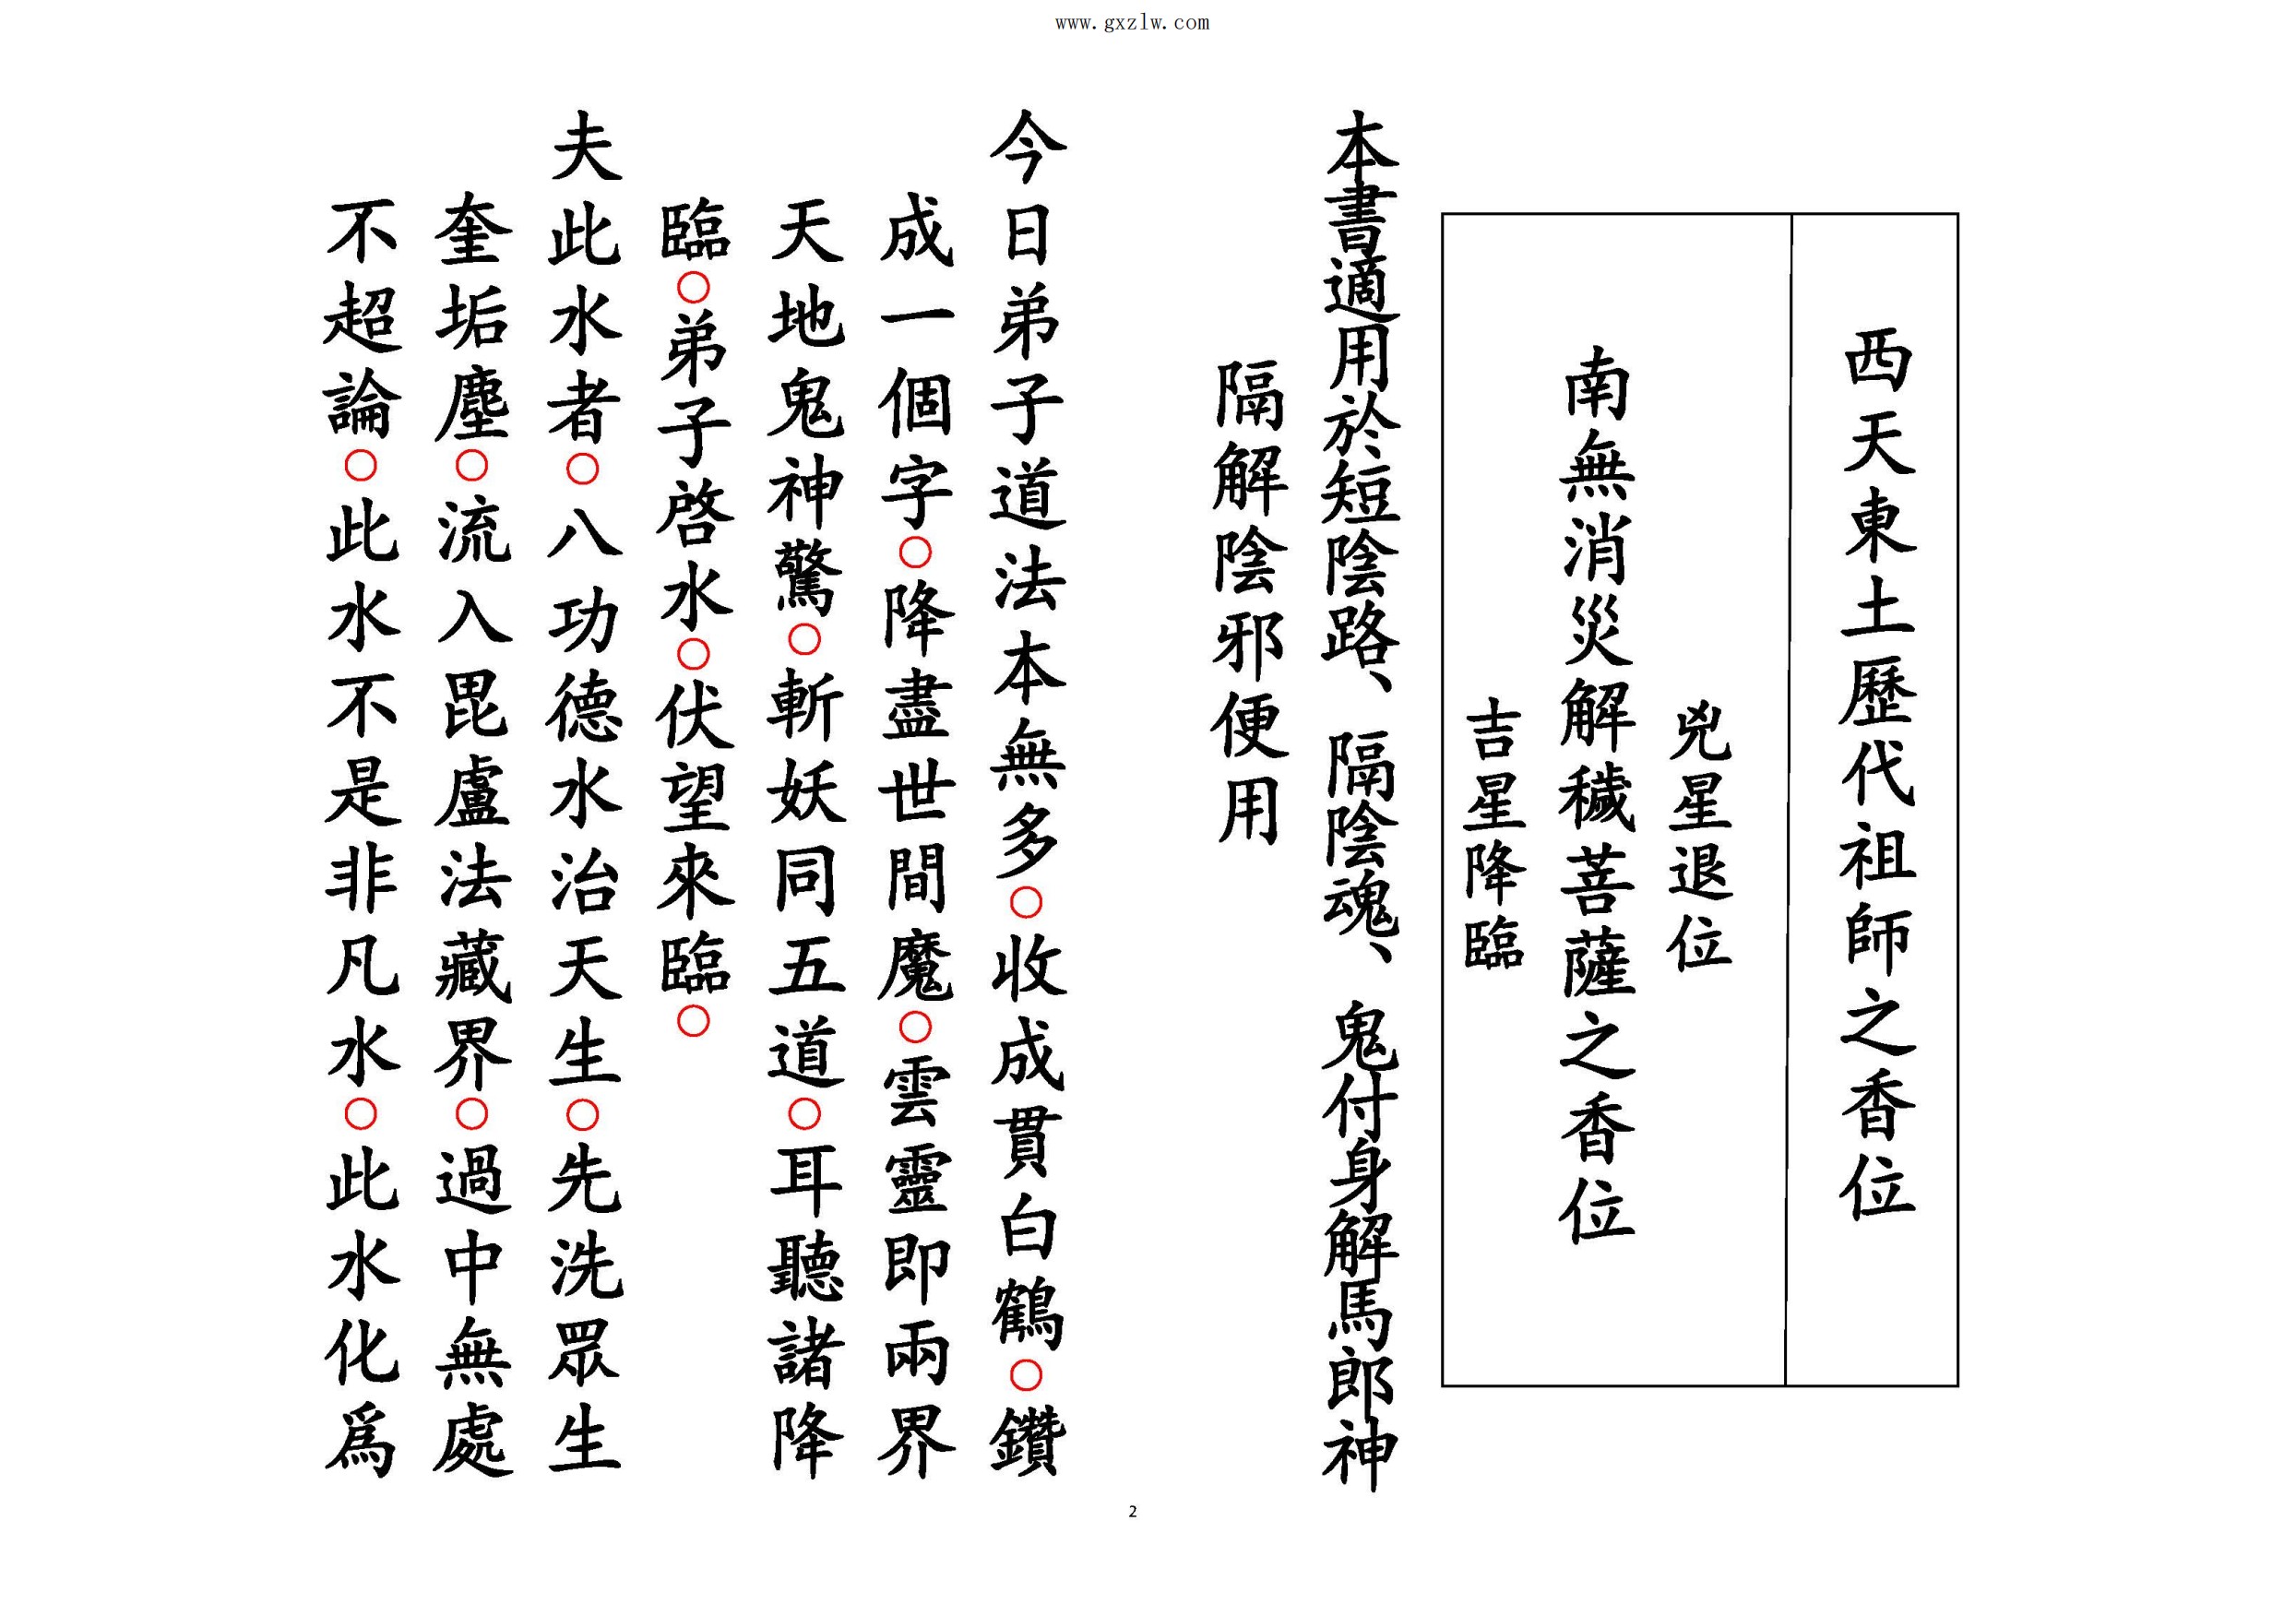 www.gxzlw.com
西天東土歷代祖師之香位
兇星退位
南無消災解穢菩薩之香位
吉星降臨
本書適用於短陰路、隔陰魂、鬼付身解馬郎神
隔解陰邪便用
今日弟子道法本無多○收成貫白鶴○鑽
成一個字○降盡世間魔○雲靈即兩界
天地鬼神驚○斬妖同五道○耳聽諸降
臨○弟子啓水○伏望來臨○
夫此水者○八功德水治天生○先洗眾生
奎垢塵○流入毘盧法藏界○過中無處
不超論○此水不是非凡水○此水化爲
2